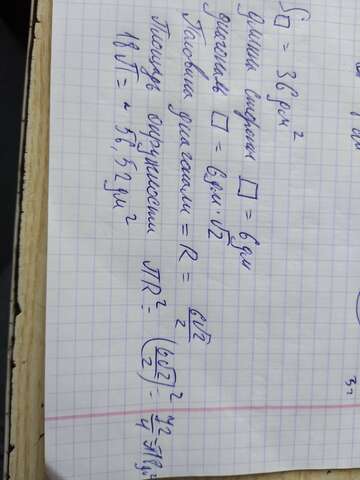 S□ = 36 дм²
длина стороны □ = 6 дм
диагональ □ = 6 дм · √2
Половина диагонали = R = 6√2/2
Площадь окружности πR² = (6√2/2)² = 72/4 =
18π = ~ 56,52 дм²